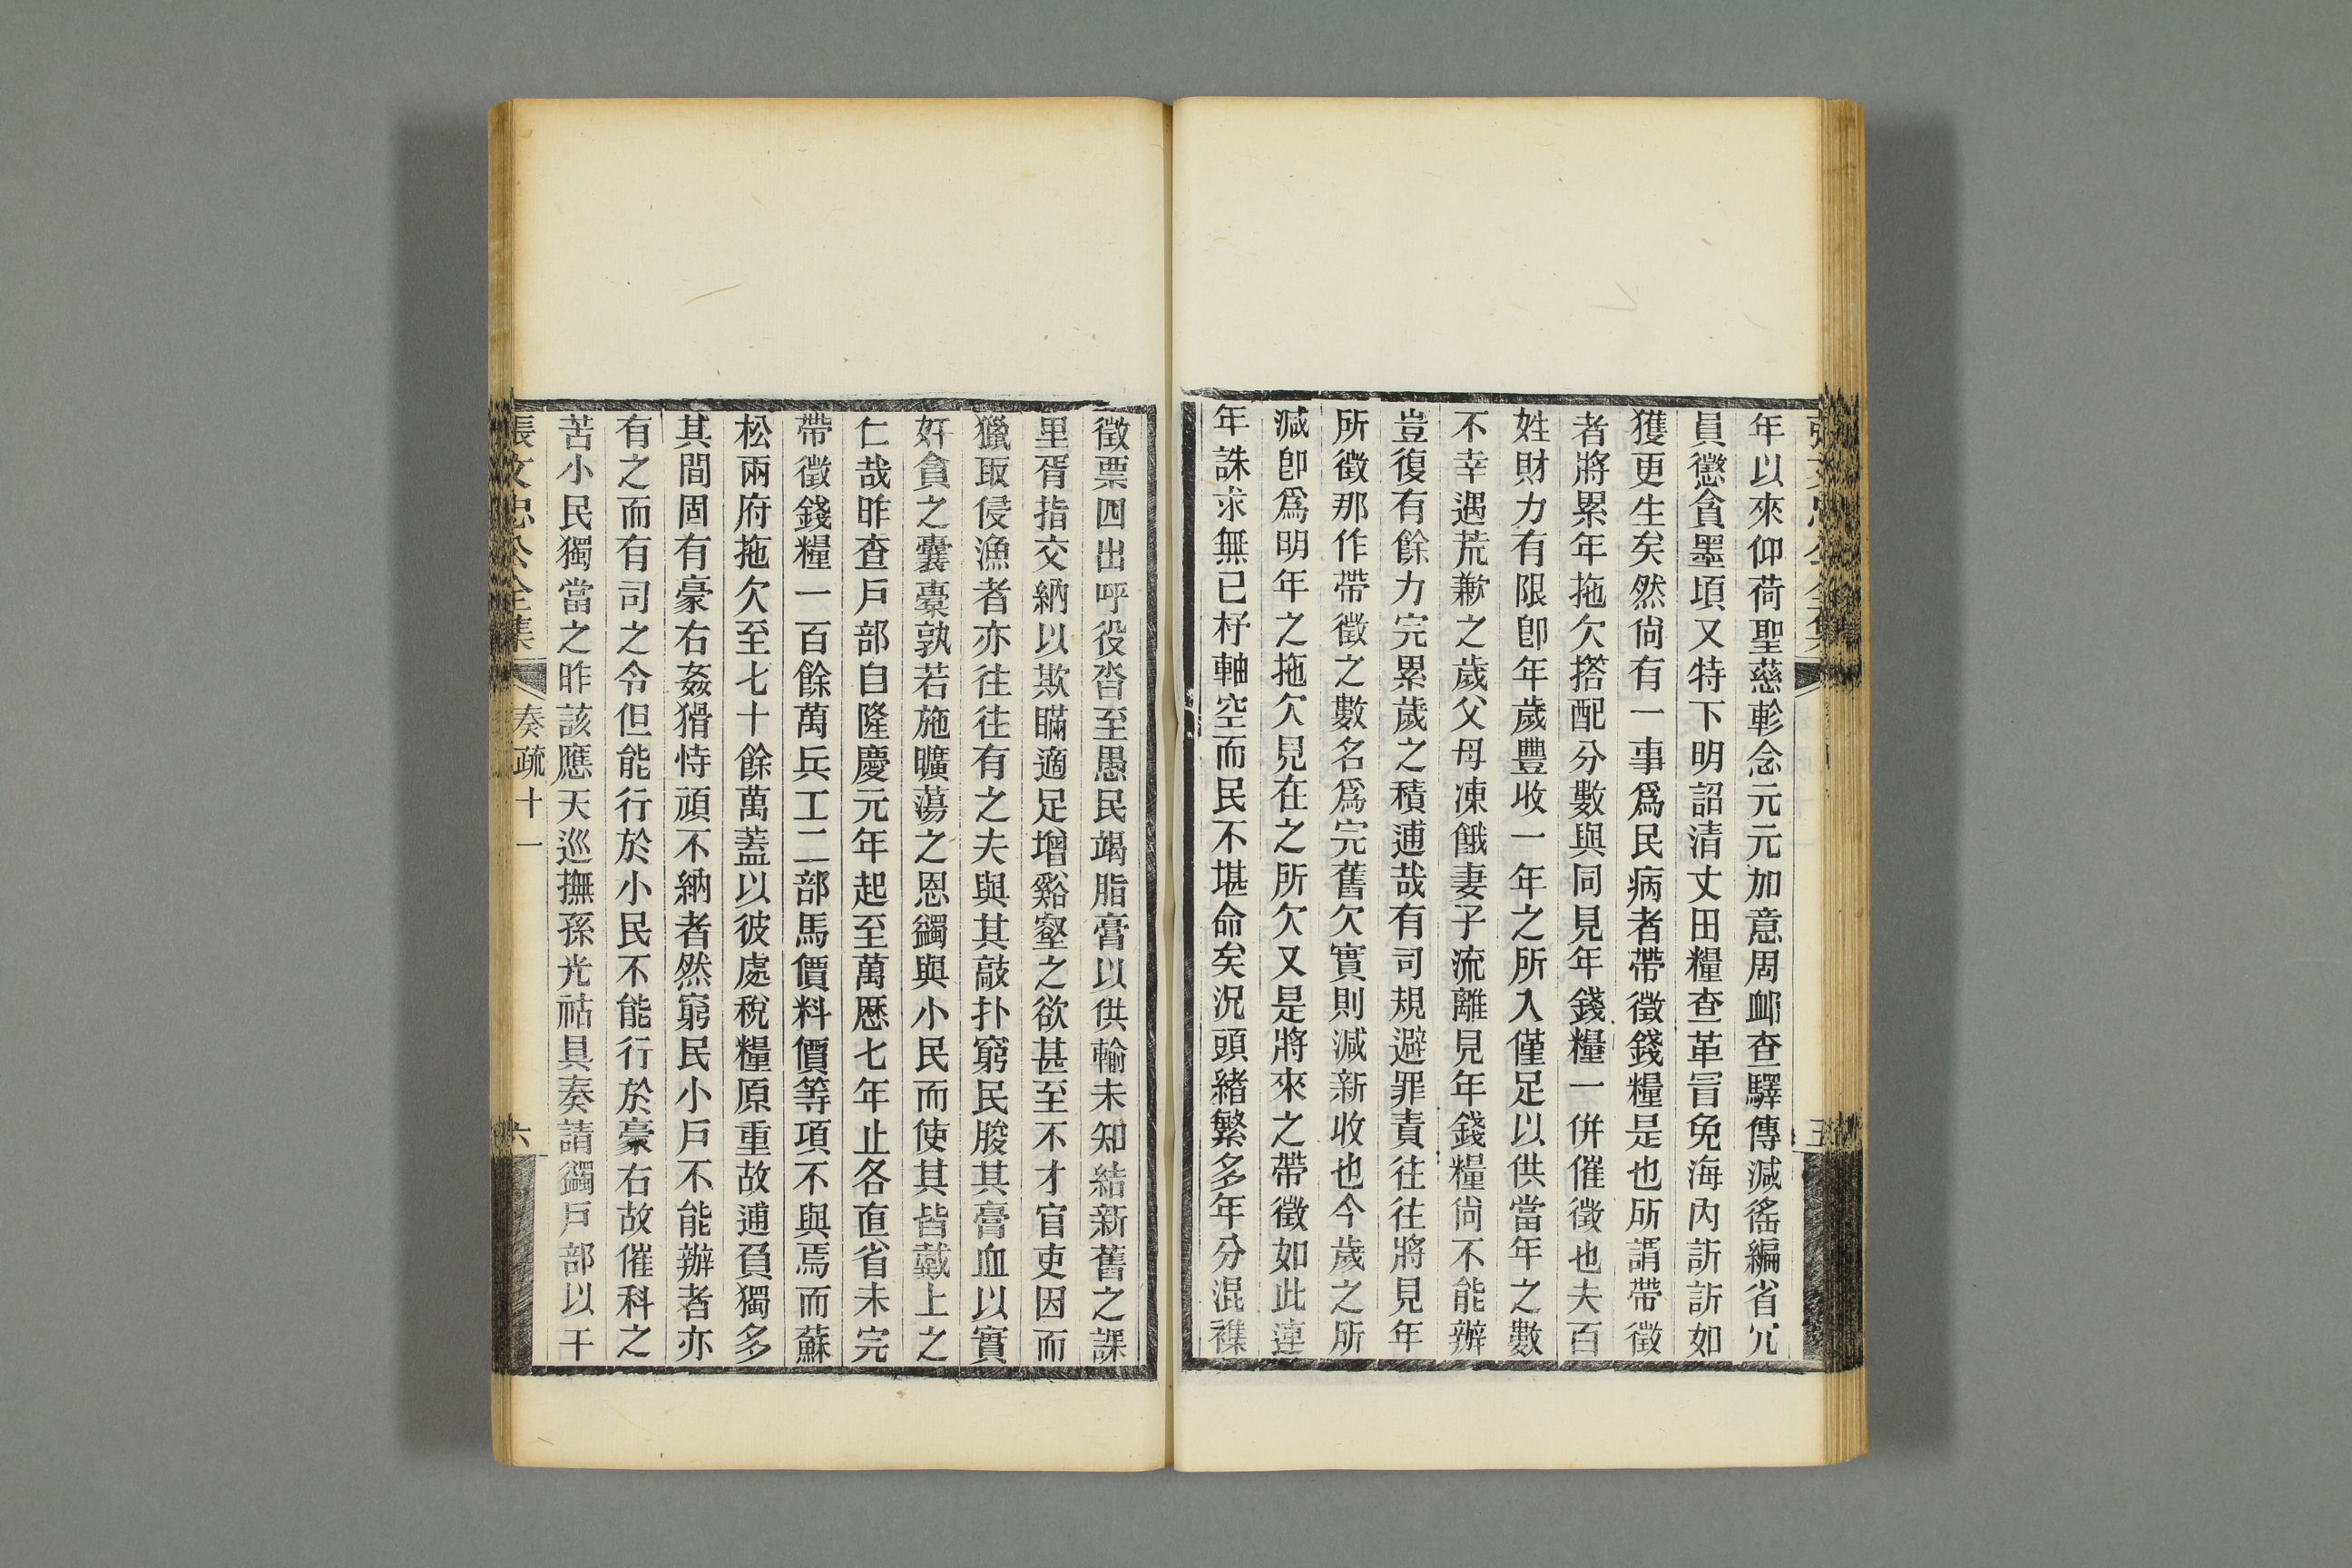 年以來仰荷聖慈軫念元元加意周䘏查驛傳減徭編省冗
員懲貪墨項又特下明詔清丈田糧查革冒免海內訢訢如
獲更生矣然尙有一事爲民病者帶徵錢糧是也所謂帶徵
者將累年拖欠搭配分數與同見年錢糧一併催徵也夫百
姓財力有限卽年歲豐收一年之所入僅足以供當年之數
不幸遇荒歉之歲父母凍餓妻子流離見年錢糧尙不能辦
豈復有餘力完累歲之積逋哉有司規避罪責往往將見年
所徵那作帶徵之數名爲完舊欠實則減新收也今歲之所
減卽爲明年之拖欠見在之所欠又是將來之帶徵如此連
年誅求無已杼軸空而民不堪命矣況頭緒繁多年分混襍
五
徵票四出呼役沓至愚民竭脂膏以供輸未知結新舊之課
里胥指交納以欺瞞適足增谿壑之欲甚至不才官吏因而
獵取侵漁者亦往往有之夫與其敲扑窮民朘其膏血以實
奸貪之囊橐孰若施曠蕩之恩蠲與小民而使其皆戴上之
仁哉昨查戶部自隆慶元年起至萬歷七年止各直省未完
帶徵錢糧一百餘萬兵工二部馬價料價等項不與焉而蘇
松兩府拖欠至七十餘萬蓋以彼處稅糧原重故逋負獨多
其間固有豪右姦猾恃頑不納者然窮民小戶不能辦者亦
有之而有司之令但能行於小民不能行於豪右故催科之
苦小民獨當之昨該應天巡撫孫光祜具奏請蠲戶部以干
張文忠公全集 奏疏十一 六